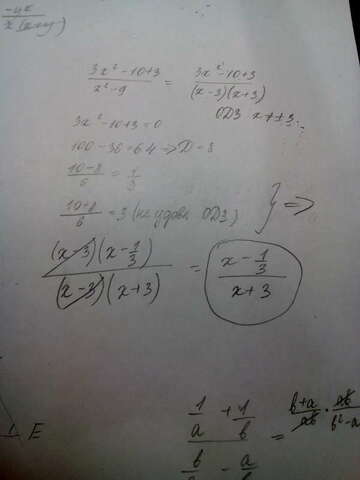 -4x
x(x+y)
3x² -10+3 / x² -9 = 3x² -10+3 / (x-3)(x+3)
ОДЗ x≠±3
3x² -10+3=0
100-36=64 => D=8
10-8 / 6 = 1/3
10+8 / 6 = 3 (не удовл ОДЗ) } =>
(x-3)(x-1/3) / (x-3)(x+3) = x-1/3 / x+3
1/a + 1/b = b+a / ab · ab / b²-a
b - a / b
E